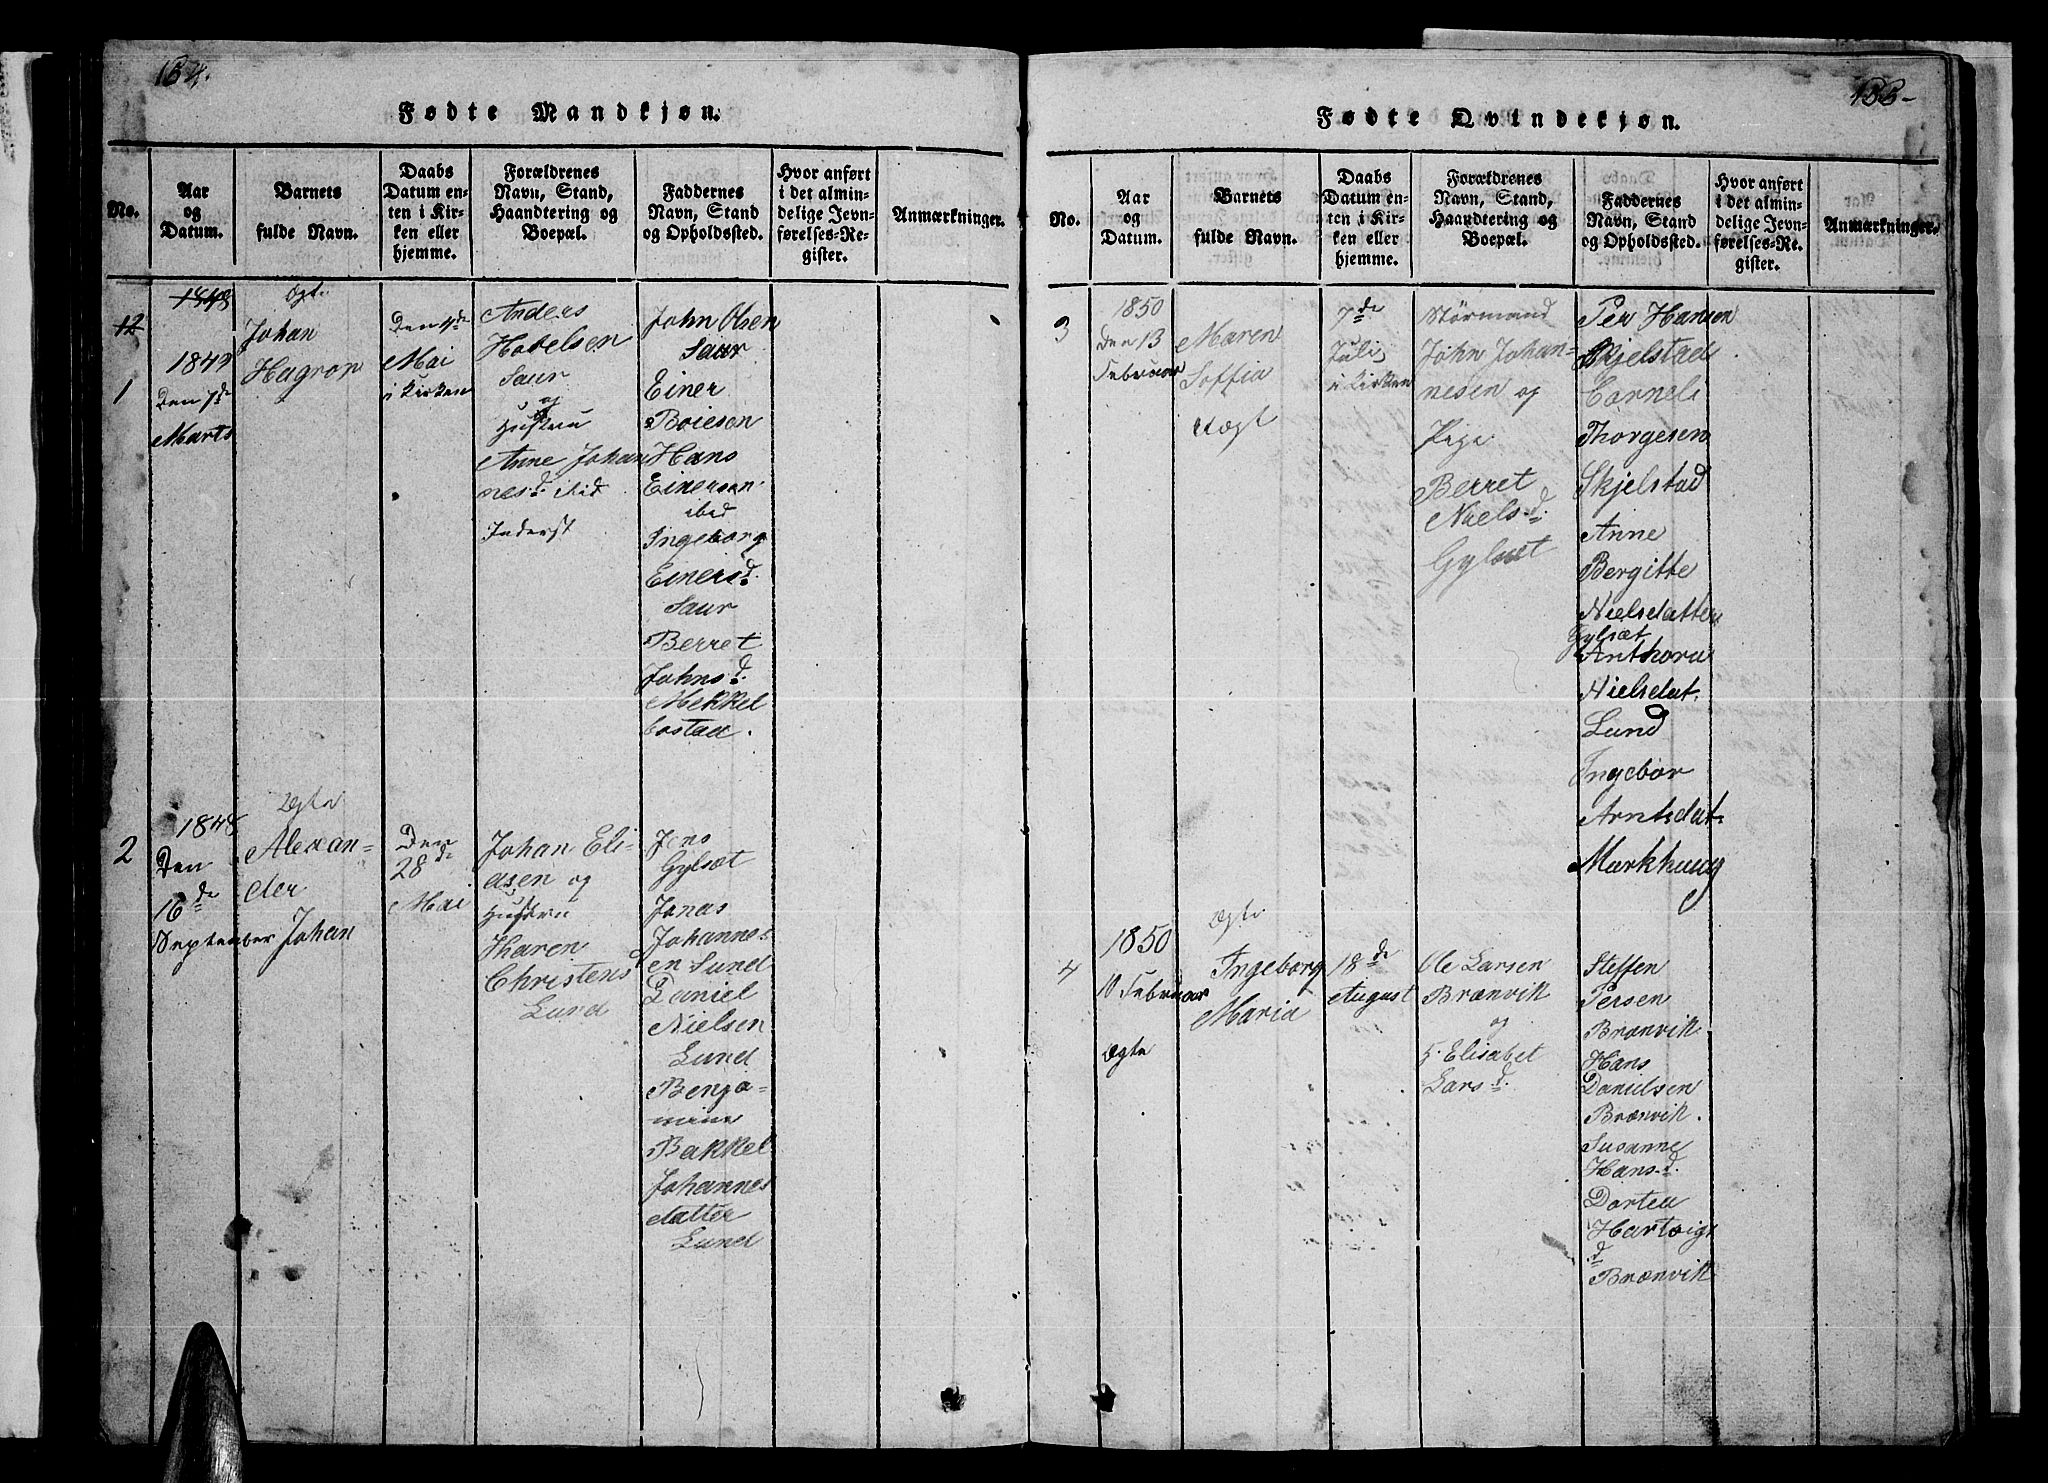 154.
Fødte Mandkjøn.
No.
Aar
og
Datum.
Barnets
fulde Navn.
Daabs
Datum en-
ten i Kir-
ken eller
hjemme.
Forældrenes
Navn, Stand,
Haandtering og
Boepæl.
Faddernes
Navn, Stand
og Opholdssted.
Hvor anført
i det almin-
delige Jevn-
førelses-Re-
gister.
Anmærkninger.
12
1848
1
1849
Den 7de
Marts
Ægt.
Johan
Hagrop
Den
Mai
i Kirken
Anders
Havelsen
Saur
og
Hustru
Anne Johan
nesd. ibid
Inderst
John Olsen
Saur
Einer
Boiesen
Hans
Einersen
ibid
Ingeborg
Einersd.
Saur
Berret
Johnsd.
Mekkel
bostad.
2
1848
Den
16de
September
Ægte
Alexan-
der
Johan
Den
28de
Mai
Johan Eli-
asen og
Hustru
Karen
Christensd
Lund
Jens
Gylset
Jonas
Johannes-
en Lund
Daniel
Nielsen
Lund
Benja-
mine
Bakkel
Johannes
datter
Lund
155-
Fødte Qvindekjøn.
No.
Aar
og
Datum.
Barnets
fulde Navn.
Daabs
Datum en-
ten i Kir-
ken eller
hjemme.
Forældrenes
Navn, Stand,
Haandtering og
Boepæl.
Faddernes
Navn, Stand
og Opholdssted.
Hvor anført
i det almin-
delige Jevn-
førelses-Re-
gister.
Anmærkninger.
3
1850
Den 13
Februar
Maren
Soffia
Uægt
7de
Juli
i Kirken
John Johan-
nesen og
Pige
Berret
Nielsd.
Gylset
Per Hansen
Skjelstad
Cornels
Thorgesen
Skjelstad
Anne
Bergitte
Nielsdatter
Gylsæt
Anthora
Nielsdat.
Lund
Ingebor
Arntsdat.
Markhaug
4
1850
10 Februar
Ægte
Ægte
Ingeborg
Maria
18de
August
Ole Larsen
Brænvik
og
H. Elisabet
Larsd.
Steffen
Persen
Brænvik
Hans
Danielsen
Brænvik.
Susanne
Hansd.
Dortea
Hartvig
d
Brænvik